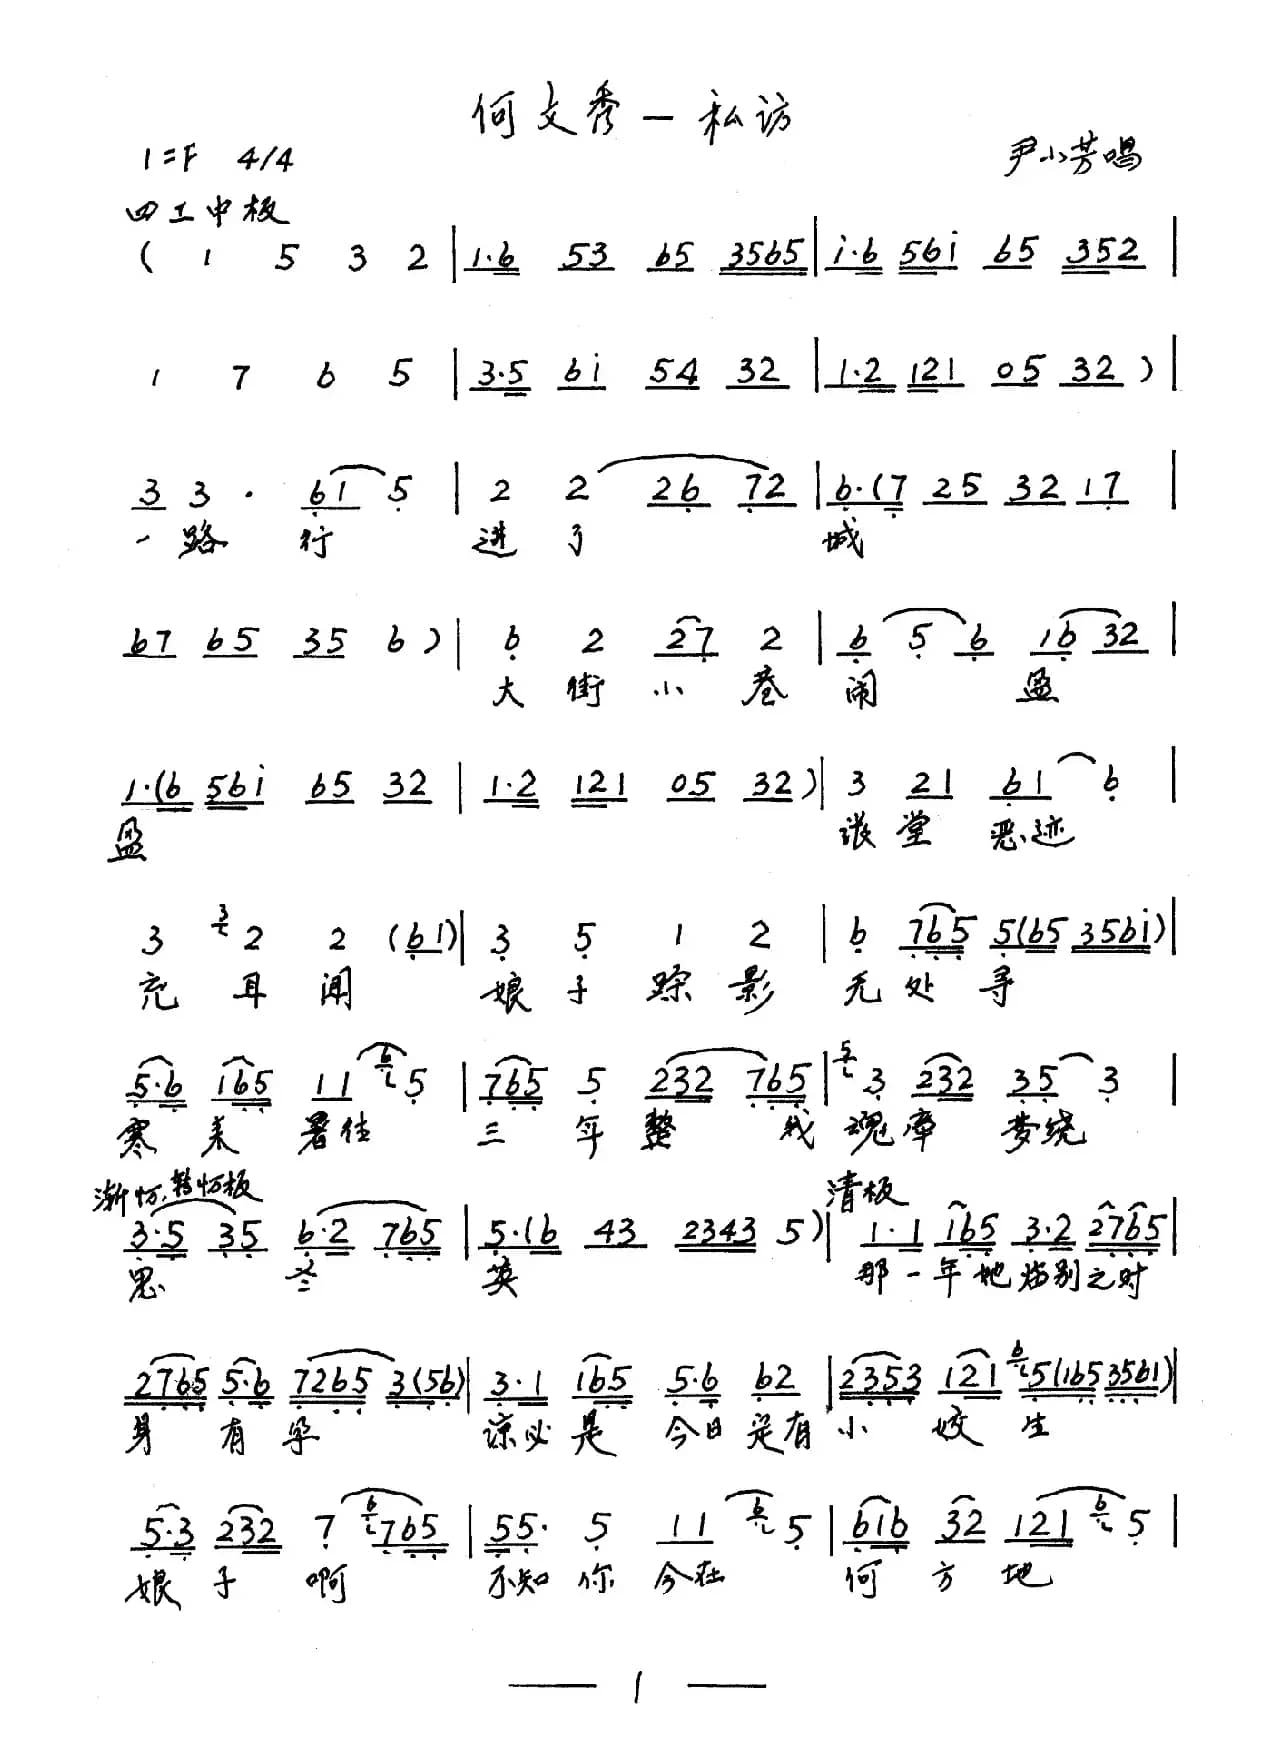 何文秀—私访
1=F 4/4 尹小芳唱
四工中板
( 1 5 3 2 | 1·6 53 65 3565 | i·6 56i 65 352 |
1 7 6 5 | 3·5 6i 54 32 | 1·2 121 05 32 ) |
3 3 · 61 5 | 2 2 26 72 | 6·(7 25 32 17 |
一路行 进了 城
67 65 35 6 ) | 6 2 27 2 | 6 5 6 16 32 |
大街小巷 闹 盈
1·(6 56i 65 32 | 1·2 121 05 32 ) | 3 21 61 6 |
盈 张堂恶迹
3 3 2 2 (61) | 3 5 1 2 | 6 765 5(65 356i) |
充耳闻 娘子踪影 无处寻
5·6 165 11 6 5 | 765 5 232 765 | 5 3 232 35 3 |
寒来暑往 三年整 我 魂牵梦绕
渐慢 转慢板 清板
3·5 35 6·2 765 | 5·(6 43 2343 5 ) | 1·1 165 3·2 2765 |
思 兰 英 那一年她临别之时
2765 5·6 7265 3(56) | 3·1 165 5·6 62 | 2353 121 6 5(165 3561) |
身有孕 谅必是今日是有小姣生
5·3 232 7 6 765 | 55· 5 11 6 5 | 616 32 121 6 5 |
娘子啊 不知你今在 何方地
— 1 —